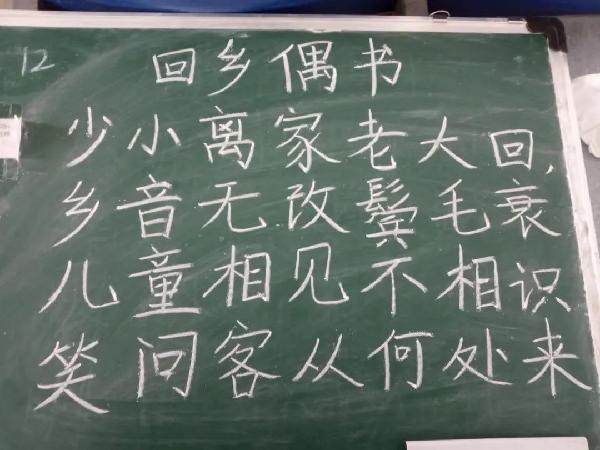 12 回乡偶书
少小离家老大回,
乡音无改鬓毛衰
儿童相见不相识
笑问客从何处来